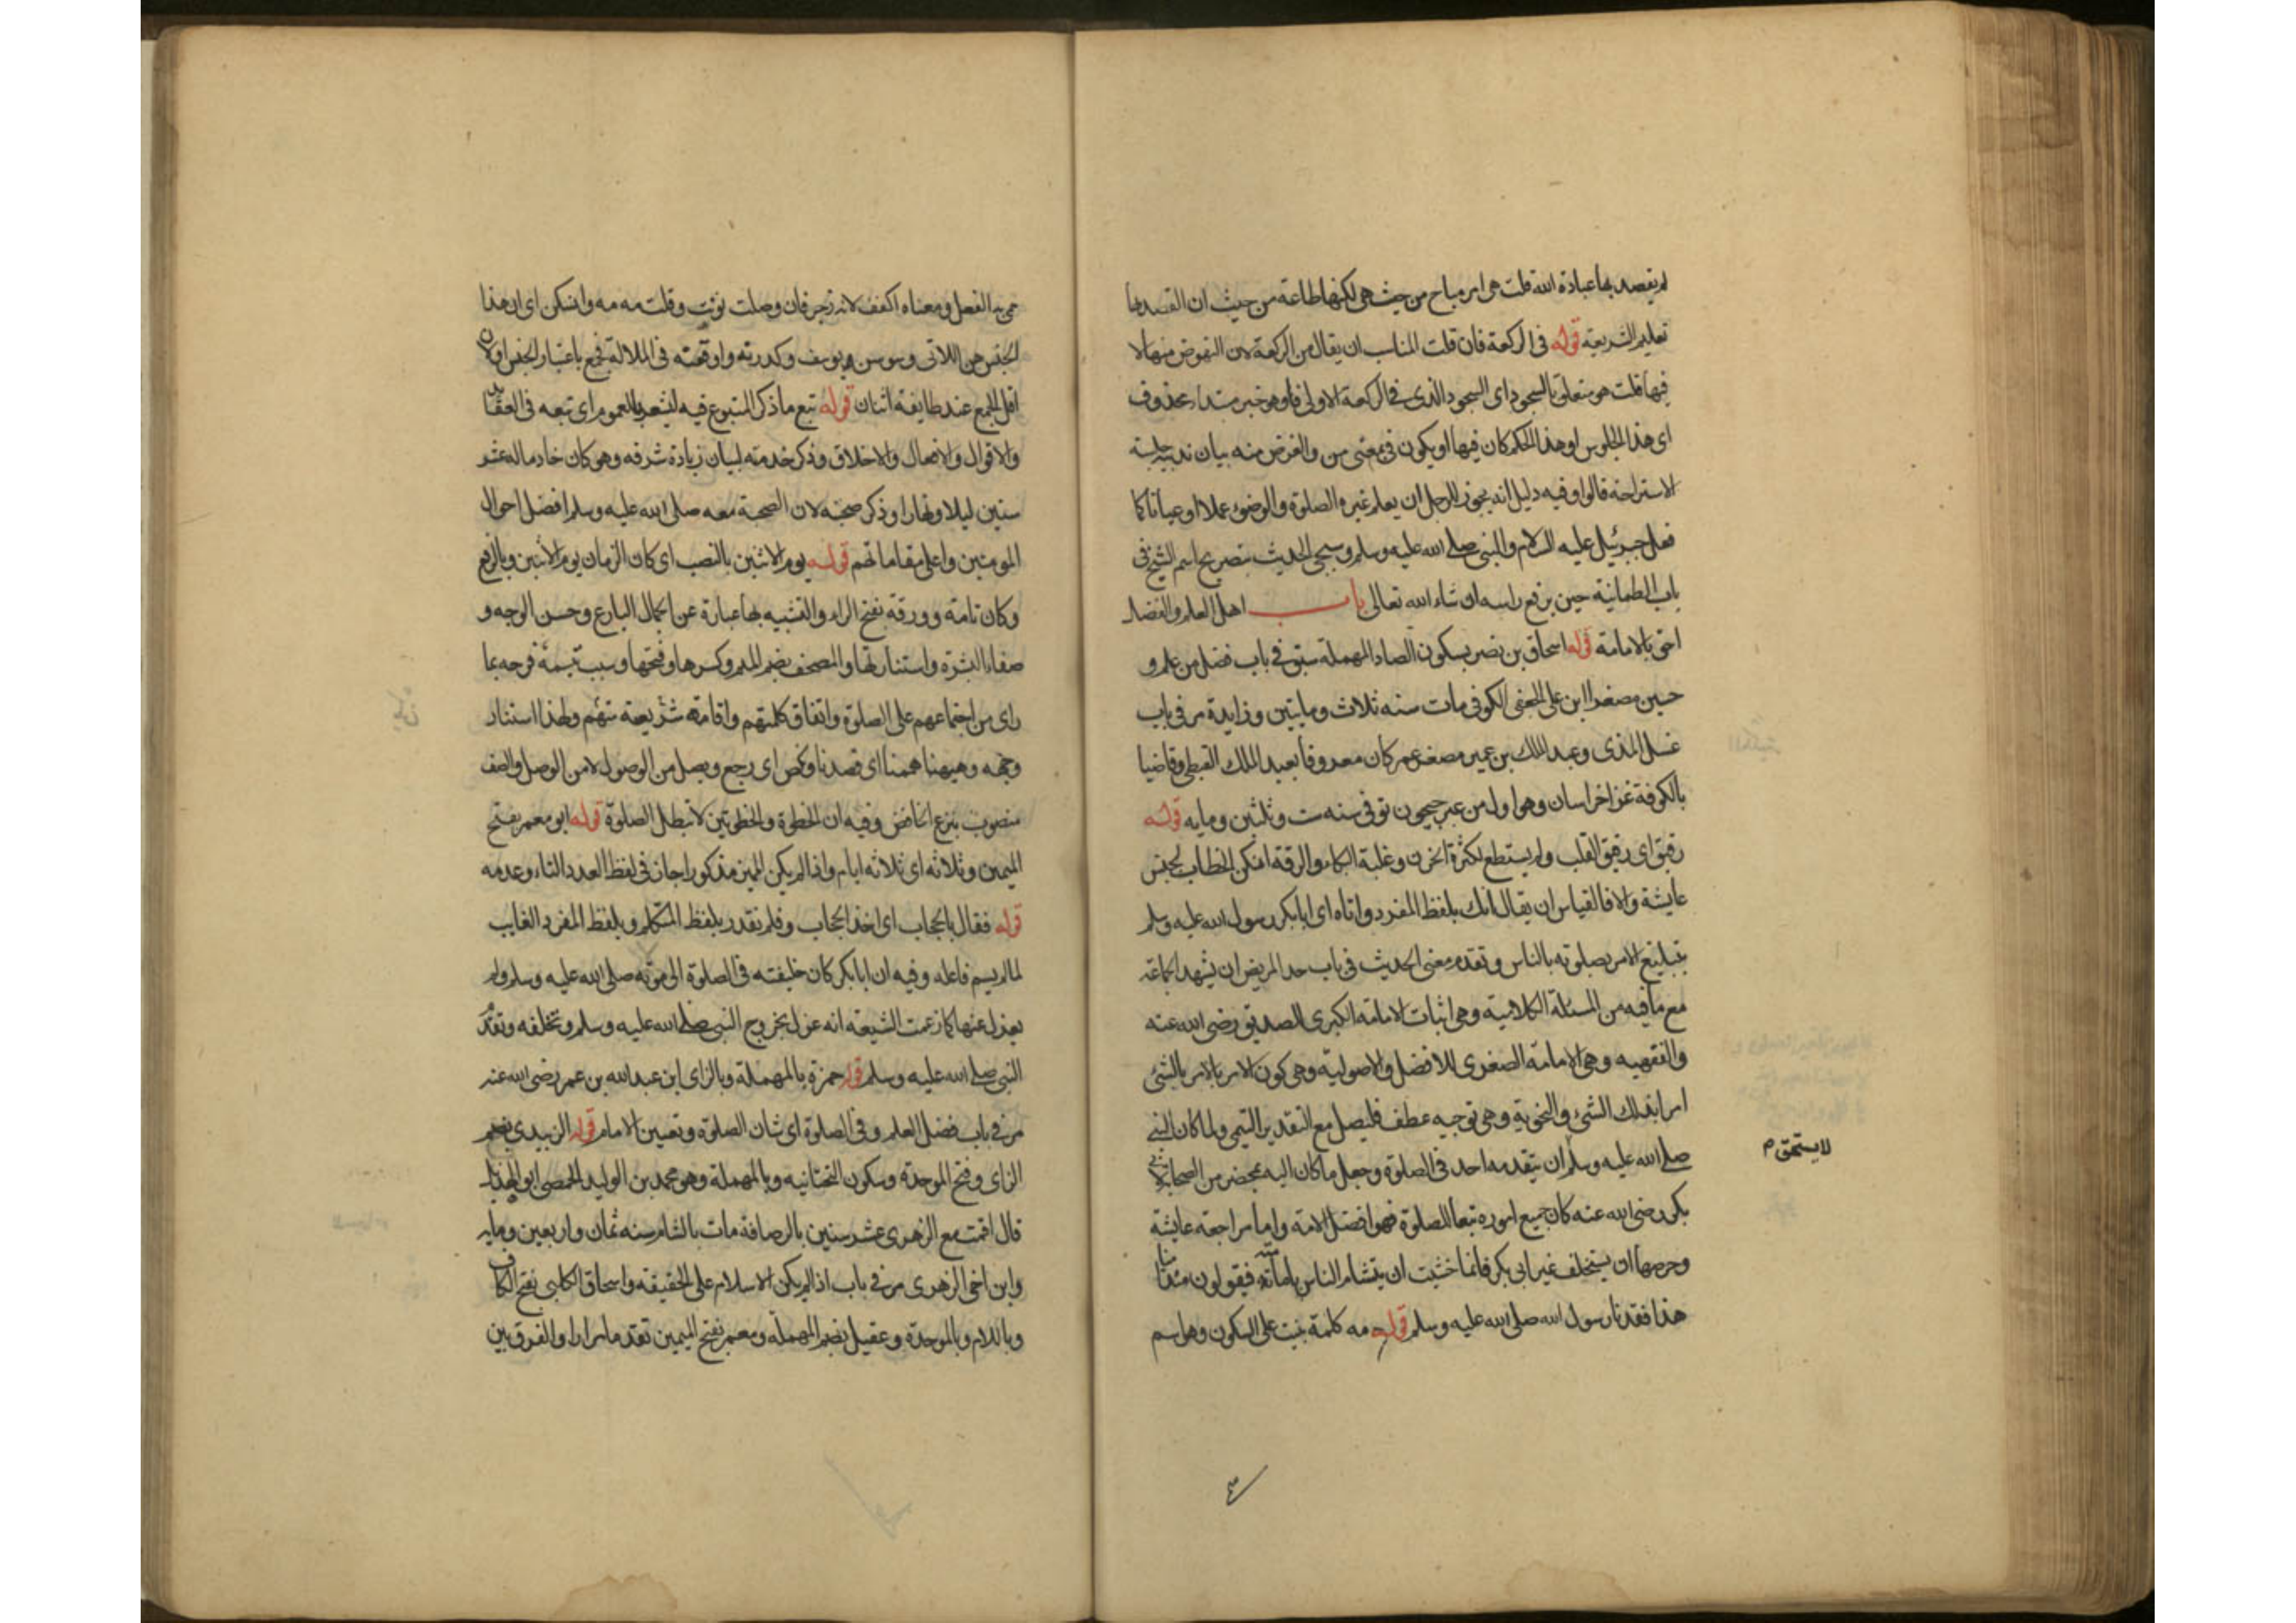 لم يقصد بها عبادة الله قلت هى امر مباح من حيث هى لكنها طاعة من حيث ان القصد بها
تعليم الشريعة قوله فى الركعة فان قلت المناسب ان يقال من الركعة لان النهوض منها لا
فيها قلت هو متعلق بالسجود اى السجود الذى فى الركعة الاولى فاوهو خبر مبتداء محذوف
اى هذا الجلوس او هذا الحكم كان فيها او يكون فى بمعنى من والغرض منه بيان ندبية جلسة
الاستراحة قالوا وفيه دليل انه يجوز للرجل ان يعلم غيره الصلوة والوضوء عملا او عيانا كما
فعل جبرئيل عليه السلام والنبى صلى الله عليه وسلم وسيجى الحديث بتصريح اسم الشيخ فى
باب الطمانية حين يرفع راسه ان شاء الله تعالى باب اهل العلم والفضل
احق بالامامة قوله اسحاق بن نصر بسكون الصاد المهملة سبق فى باب فضل من علم و
حسين مصغرا ابن على الجعفى الكوفى مات سنه ثلاث ومايتين وزايدة مر فى باب
غسل المذى وعبد الملك بن عمير مصغر عمر كان معروفا بعبد الملك القبطى وقاضيا
بالكوفة غزا خراسان وهو اول من عبر جيحون توفى سنه ست وثلثين ومايه قوله
رقيق اى رقيق القلب ولم يستطع لكثرة الحزن وغلبة البكاء والرقة انكن الخطاب لجنس
عايشة والا فالقياس ان يقال انك بلفظ المفرد واتاه اى ابابكر رسول الله عليه وسلم
بتبليغ الامر بصلوته بالناس وتقدم معنى الحديث فى باب حد المريض ان يشهد الجماعة
مع ما فيه من المسئلة الكلامية وهى اثبات الامامة الكبرى للصديق رضى الله عنه
والفقهيه وهى الامامة الصغرى للافضل والاصولية وهى كون الامر بالامر بالشئ
امرا بذلك الشئ والنحوية وهى توجيه عطف فليصل مع التقدير التيمى ولما كان النبى
صلى الله عليه وسلم ان يتقدمه احد فى الصلوة وجعل ما كان اليه بمحضر من الصحابة لابى
لا يستحق م
بكر رضى الله عنه كان جميع اموره تبعا للصلوة فهو افضل الامة واما مراجعة عايشة
وحرصها ان يستخلف غير ابى بكر فانما خشيت ان يتشام الناس بامامته فيقولون منذ امنا
هذا فقدنا رسول الله صلى الله عليه وسلم قوله مه كلمة بنيت على السكون وهو اسم
سمى به الفعل ومعناه اكفف لانه زجر فان وصلت نونت وقلت مه مه وانكن اى ان هذا
الجنس هن اللاتى وسوسن يوسف وكدرته واوقعته فى الملالة فجمع باعتبار الجنس او لان
اقل الجمع عند طايفة اثنان قوله تبع ما ذكر المتبوع فيه ليشعر بالعموم اى تبعه فى العقايد
والاقوال والافعال والاخلاق وذكر خدمته لبيان زيادة شرفه وهو كان خادما له عشر
سنين ليلا ونهارا وذكر صحبته لان الصحبة معه صلى الله عليه وسلم افضل احوال
المومنين واعلى مقاماتهم قوله يوم الاثنين بالنصب اى كان الزمان يوم الاثنين وبالرفع
وكان تامة وورقة بفتح الراء والتشبيه بها عبارة عن الجمال البارع وحسن الوجه و
صفاء البشرة واستنارتها والمصحف بضم الميم وكسرها وفتحها وسبب تبسمه فرحه بما
راى من اجتماعهم على الصلوة واتفاق كلمتهم واقامة شريعته بينهم ولهذا استنار
وجهه وهيهنا هممنا اى قصدنا ونكص اى رجع ويصل من الوصول لا من الوصل والصف
منصوب بنزع الخافض وفيه ان الخطوة والخطوتين لا تبطل الصلوة قوله ابو معمر بفتح
الميمين وثلاثه اى ثلاثه ايام واذا لم يكن المميز مذكورا جاز فى لفظ العدد التاء وعدمه
قوله فقال بالحجاب اى اخذ الحجاب وفلم نقدر بلفظ المتكلم وبلفظ المفرد الغايب
لما لم يسم فاعله وفيه ان ابابكر كان خليفته فى الصلوة الى موته صلى الله عليه وسلم ولم
يعزل عنها كما زعمت الشيعة انه عزل بخروج النبى صلى الله عليه وسلم وتخلفه وتقدم
النبى صلى الله عليه وسلم قوله حمزة بالمهملة وبالزاى ابن عبدالله بن عمر رضى الله عنه
مر فى باب فضل العلم وفى الصلوة اى شان الصلوة وتعيين الامام قوله الزبيدى بضم
الزاى وفتح الموحدة وسكون التحتانيه وبالمهملة وهو محمد بن الوليد الحمصى ابو الهذيل
قال اقمت مع الزهرى عشر سنين بالرصافة مات بالشام سنه ثمان واربعين ومايه
وابن اخى الزهرى مر فى باب اذا لم يكن الاسلام على الحقيقه واسحاق الكلبى بفتح الكاف
وباللام وبالموحدة وعقيل بضم المهملة ومعمر بفتح الميمين تقدما مرارا والفرق بين